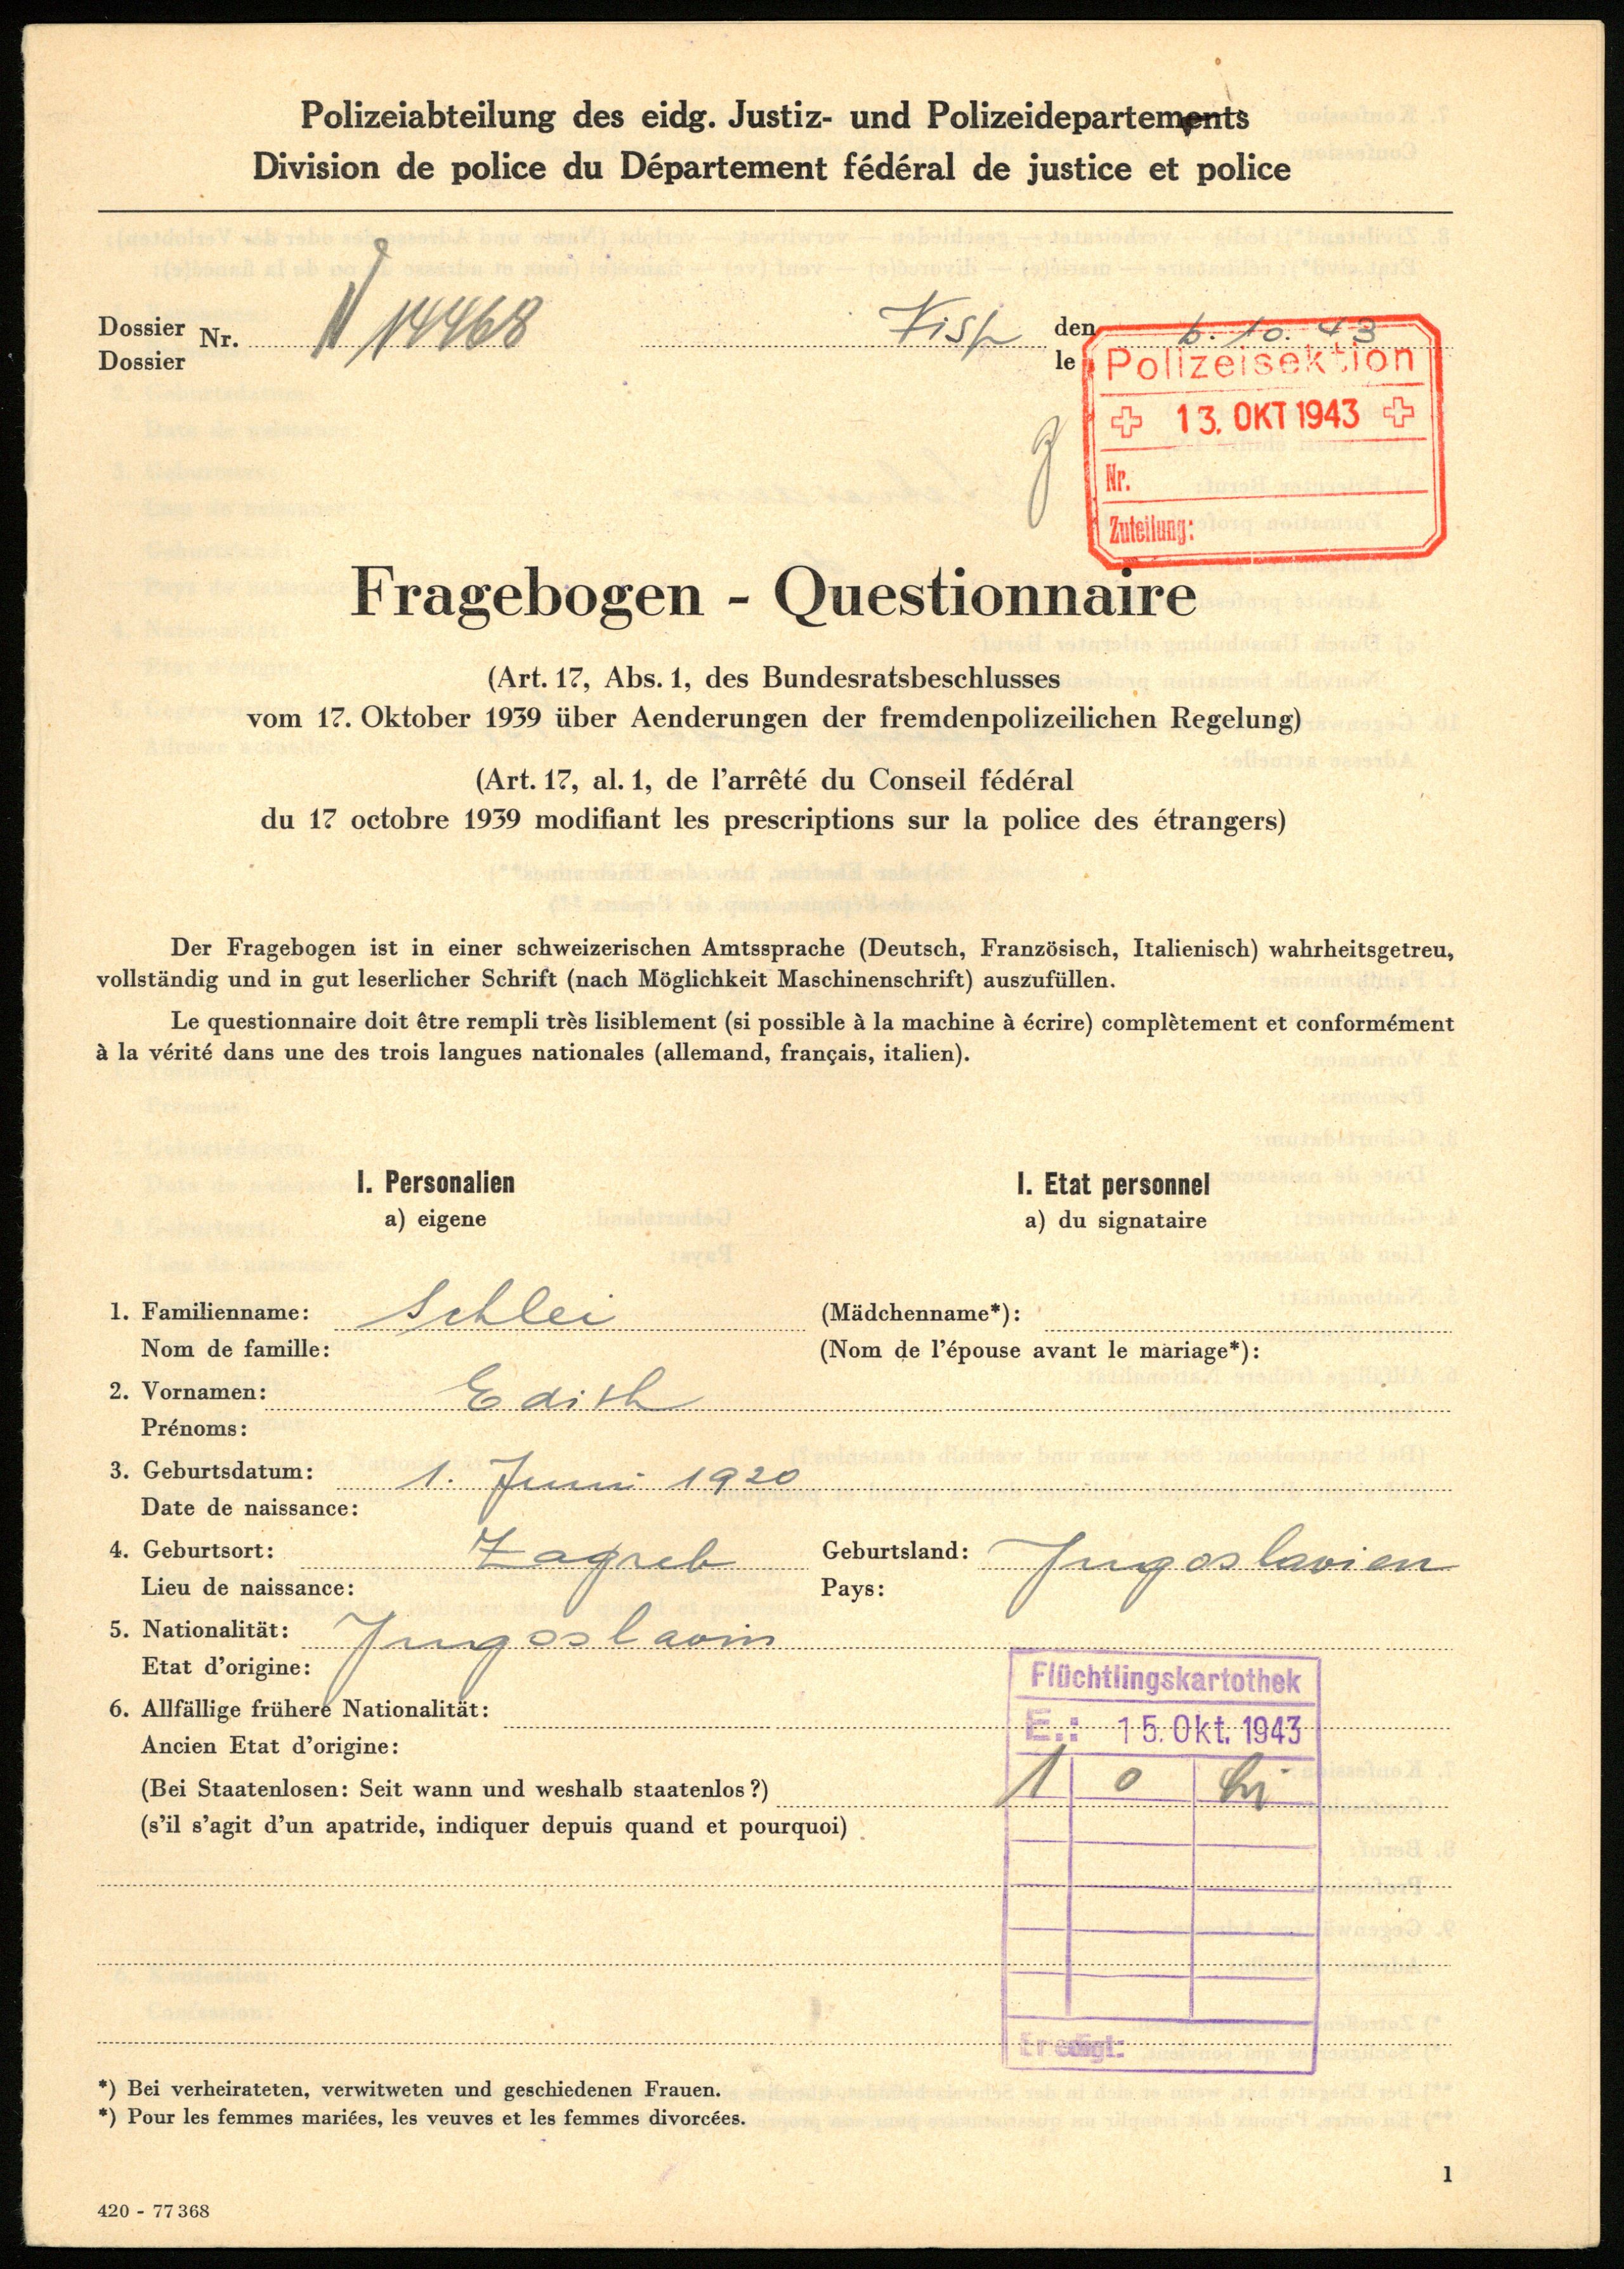 Polizeiabteilung des eidg. Justiz- und Polizeidepartements
Division de police du Département fédéral de justice et police
Dossier Nr. N 14468 Visp den 6. 10. 43
Dossier le
Polizeisektion
13. OKT 1943
Nr.
Zuteilung:
Fragebogen - Questionnaire
(Art. 17, Abs. 1, des Bundesratsbeschlusses
vom 17. Oktober 1939 über Aenderungen der fremdenpolizeilichen Regelung)
(Art. 17, al. 1, de l'arrêté du Conseil fédéral
du 17 octobre 1939 modifiant les prescriptions sur la police des étrangers)
Der Fragebogen ist in einer schweizerischen Amtssprache (Deutsch, Französisch, Italienisch) wahrheitsgetreu,
vollständig und in gut leserlicher Schrift (nach Möglichkeit Maschinenschrift) auszufüllen.
Le questionnaire doit être rempli très lisiblement (si possible à la machine à écrire) complètement et conformément
à la vérité dans une des trois langues nationales (allemand, français, italien).
I. Personalien I. Etat personnel
a) eigene a) du signataire
1. Familienname: Schlei (Mädchenname*):
Nom de famille: (Nom de l'épouse avant le mariage*):
2. Vornamen: Edith
Prénoms:
3. Geburtsdatum: 1. Juni 1920
Date de naissance:
4. Geburtsort: Zagreb Geburtsland: Jugoslavien
Lieu de naissance: Pays:
5. Nationalität: Jugoslavin
Etat d'origine:
Flüchtlingskartothek
6. Allfällige frühere Nationalität:
E.: 15. Okt. 1943
Ancien Etat d'origine:
(Bei Staatenlosen: Seit wann und weshalb staatenlos?)
1 0
(s'il s'agit d'un apatride, indiquer depuis quand et pourquoi)
Erledigt:
*) Bei verheirateten, verwitweten und geschiedenen Frauen.
*) Pour les femmes mariées, les veuves et les femmes divorcées.
1
420 - 77 368